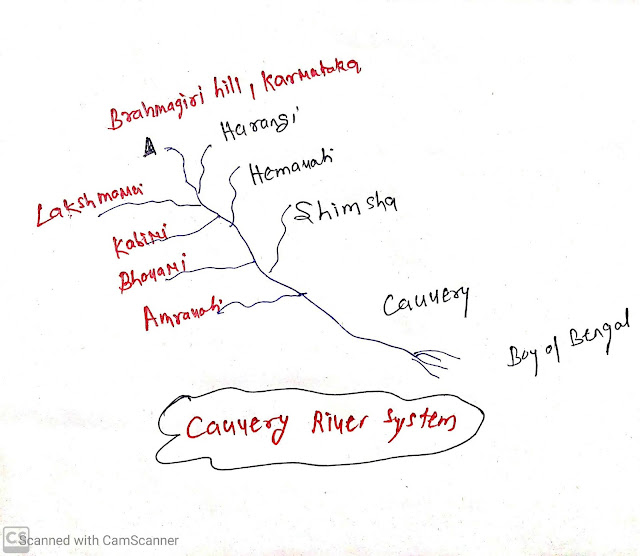 Brahmagiri hill, Karnataka
Harangi
Hemavati
Lakshmana
Shimsha
Kabini
Bhavani
Amravati
Cauvery
Bay of Bengal
Cauvery River System
CS Scanned with CamScanner